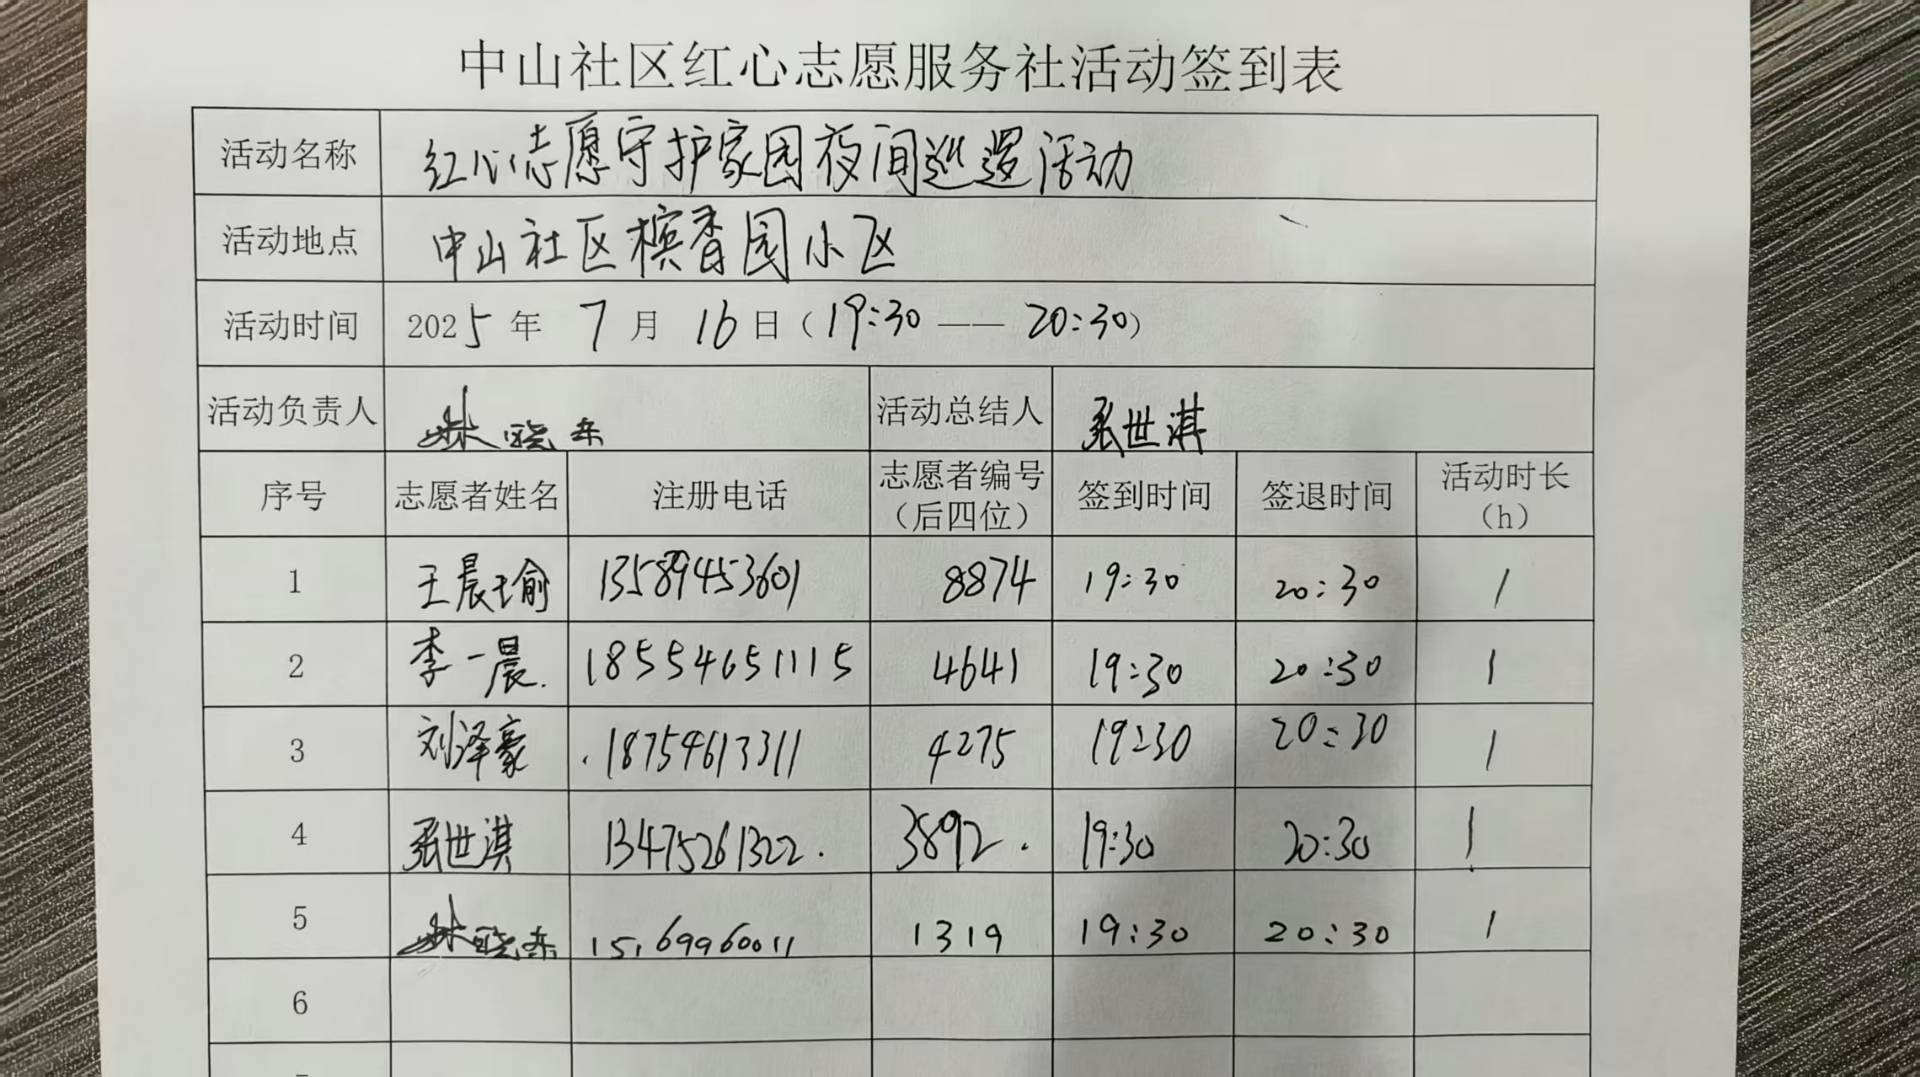 中山社区红心志愿服务社活动签到表
活动名称 红心志愿守护家园夜间巡逻活动
活动地点 中山社区槟香园小区
活动时间 2025年 7月 16日（19:30 —— 20:30）
活动负责人 林晓东 活动总结人 张世淇
序号 志愿者姓名 注册电话 志愿者编号（后四位） 签到时间 签退时间 活动时长（h）
1 王晨瑜 13589453601 8874 19:30 20:30 1
2 李一晨. 18554651115 4641 19:30 20:30 1
3 刘泽豪 18754613311 4275 19:30 20:30 1
4 张世淇 13475261322. 3892. 19:30 20:30 1
5 林晓东 15169960011 1319 19:30 20:30 1
6